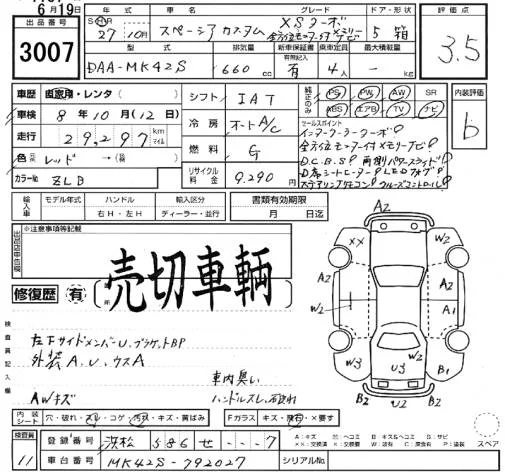 6月19日
出品番号
3007
年式
27年10月
車名
スペーシア カスタム
グレード
XSターボ
全方位モニター付メモリーナビ
ドア・形状
5 箱
評価点
3.5
型式
DAA-MK42S
排気量
660 cc
新車保証書
有
乗車定員
4人
最大積載量
- kg
車歴 自家用・レンタ
車検 8年10月(12日)
走行 29,297 km マイル
色 レッド
カラーNo. ZLB
シフト IAT
冷房 オートA/C
燃料 G
リサイクル料金 9,290円
純正のみ
PS PW AW SR
ABS エアB TV ナビ
セールスポイント
インタークーラーターボ!
全方位モニター付メモリーナビ!
D.C.B.S! 両側パワースライド!
D席シートヒーター! LEDフォグ!
ステアリングリモコン! クルーズコントロール!
内装評価
b
輸入車
モデル年式
ハンドル
右H・左H
輸入区分
ディーラー・並行
書類有効期限
月 日迄
※注意事項等記載
売切車輌
修復歴 有
検査員記入欄
左下サイドメンバーU、ブラケットBP
外装A、U、ウスA
車内臭い
AWキズ
ハンドルスレ、破れ
A2
XX
W2
A2
A2
W2
A1
W2
W3
B1
B2
U3
B2
B2
内装シート 穴・破れ・スレ・コゲ・汚れ・キズ・黄ばみ
Fガラス キズ・飛石・×要す
スペア
検査員
11
登録番号 浜松 586 せ ・・・7
車台番号 MK42S-792027
シリアルNo.